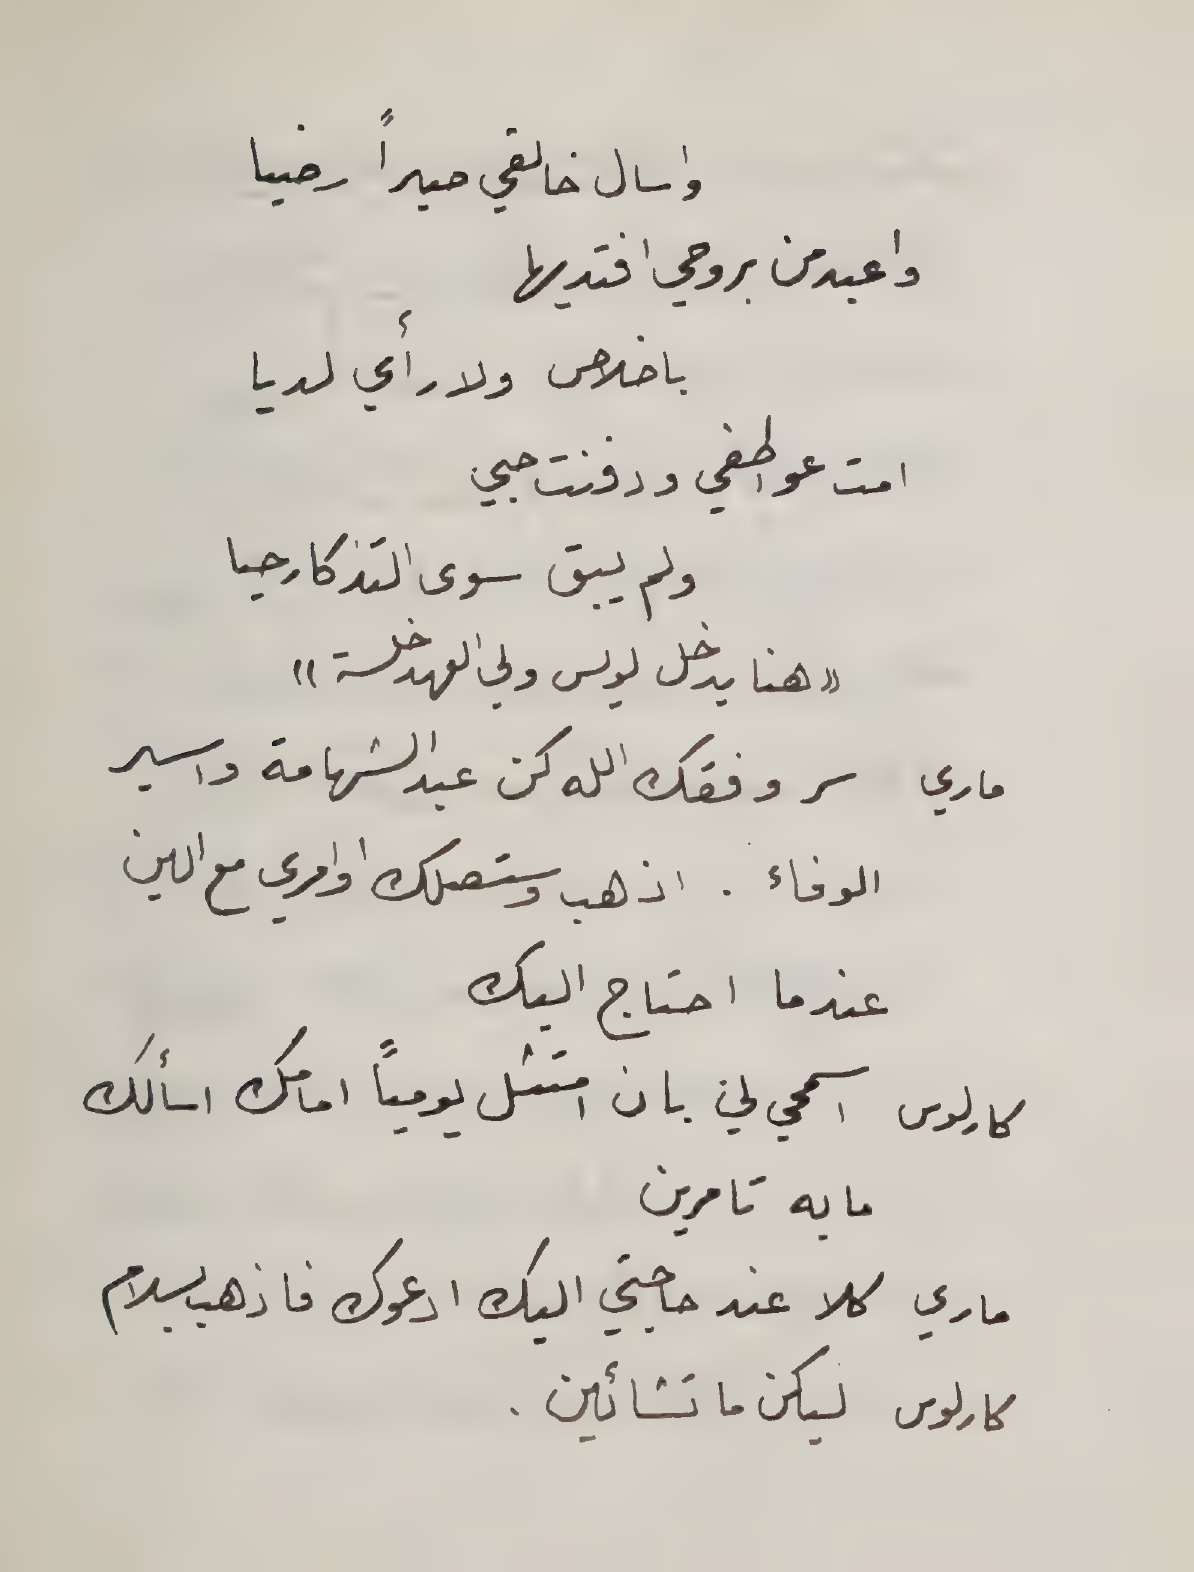 واسال خالقي صبراً رضيا
واعبد من بروحي افتديها
باخلاص ولا رأي لديا
امت عواطفي ودفنت حبي
ولم يبق سوى التذكار حيا
«هنا يدخل لويس ولي العهد خلسة»
ماري سر وفقك الله كن عبد الشهامة واسير
الوفاء . اذهب وستصلك اوامري مع الهين
عندما احتاج اليك
كارلوس اسمحي لي بان امتثل يومياً امامك اسألك
ما به تامرين
ماري كلا عند حاجتي اليك ادعوك فاذهب بسلام
كارلوس ليكن ما تشائين .